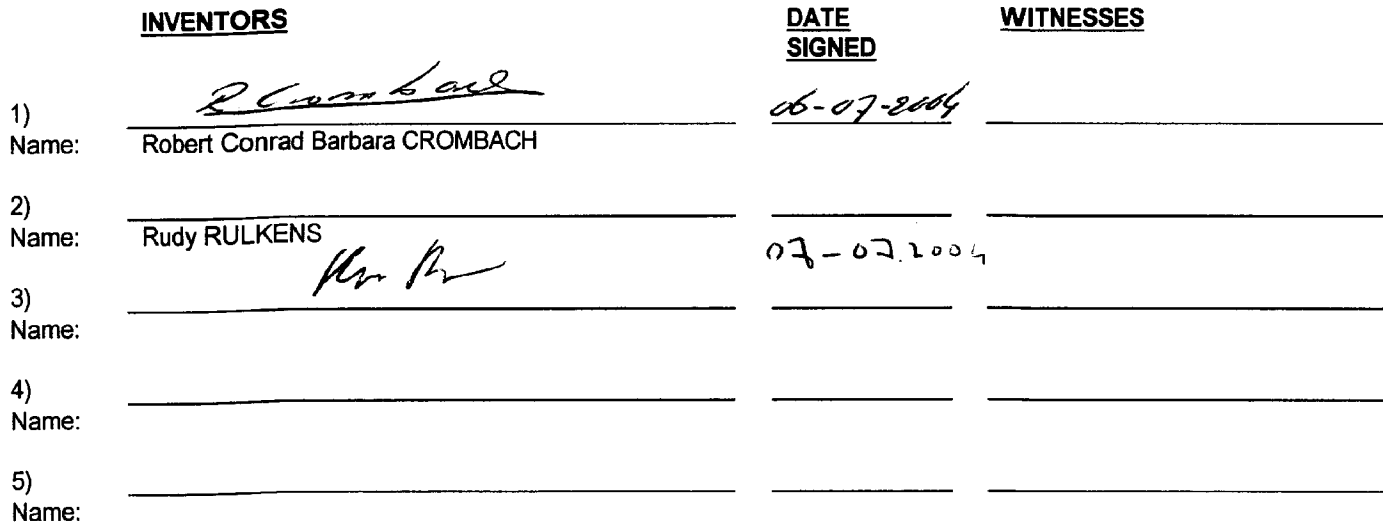 INVENTORS DATE SIGNED WITNESSES
R Crombach 06-07-2004
1)
Name: Robert Conrad Barbara CROMBACH
2)
Name: Rudy RULKENS
07-07.2004
3)
Name:
4)
Name:
5)
Name: